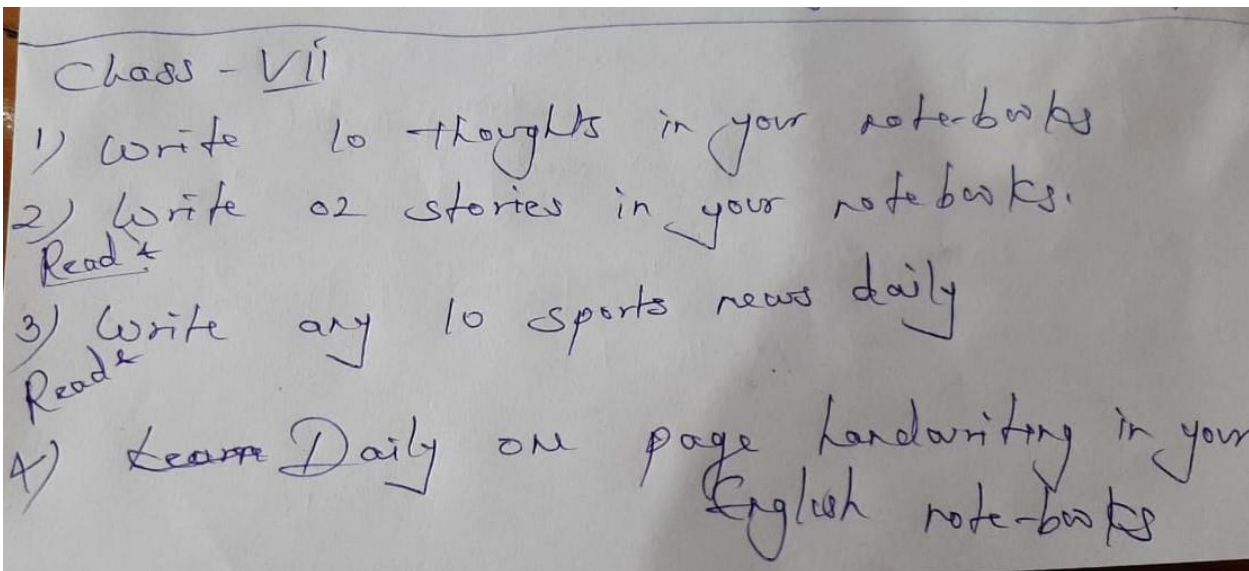 Class - VII
1) Write 10 thoughts in your note-books
2) Write 02 stories in your notebooks.
Read &
3) Write any 10 sports news daily
Read &
4) Daily one page handwriting in your
English note-books